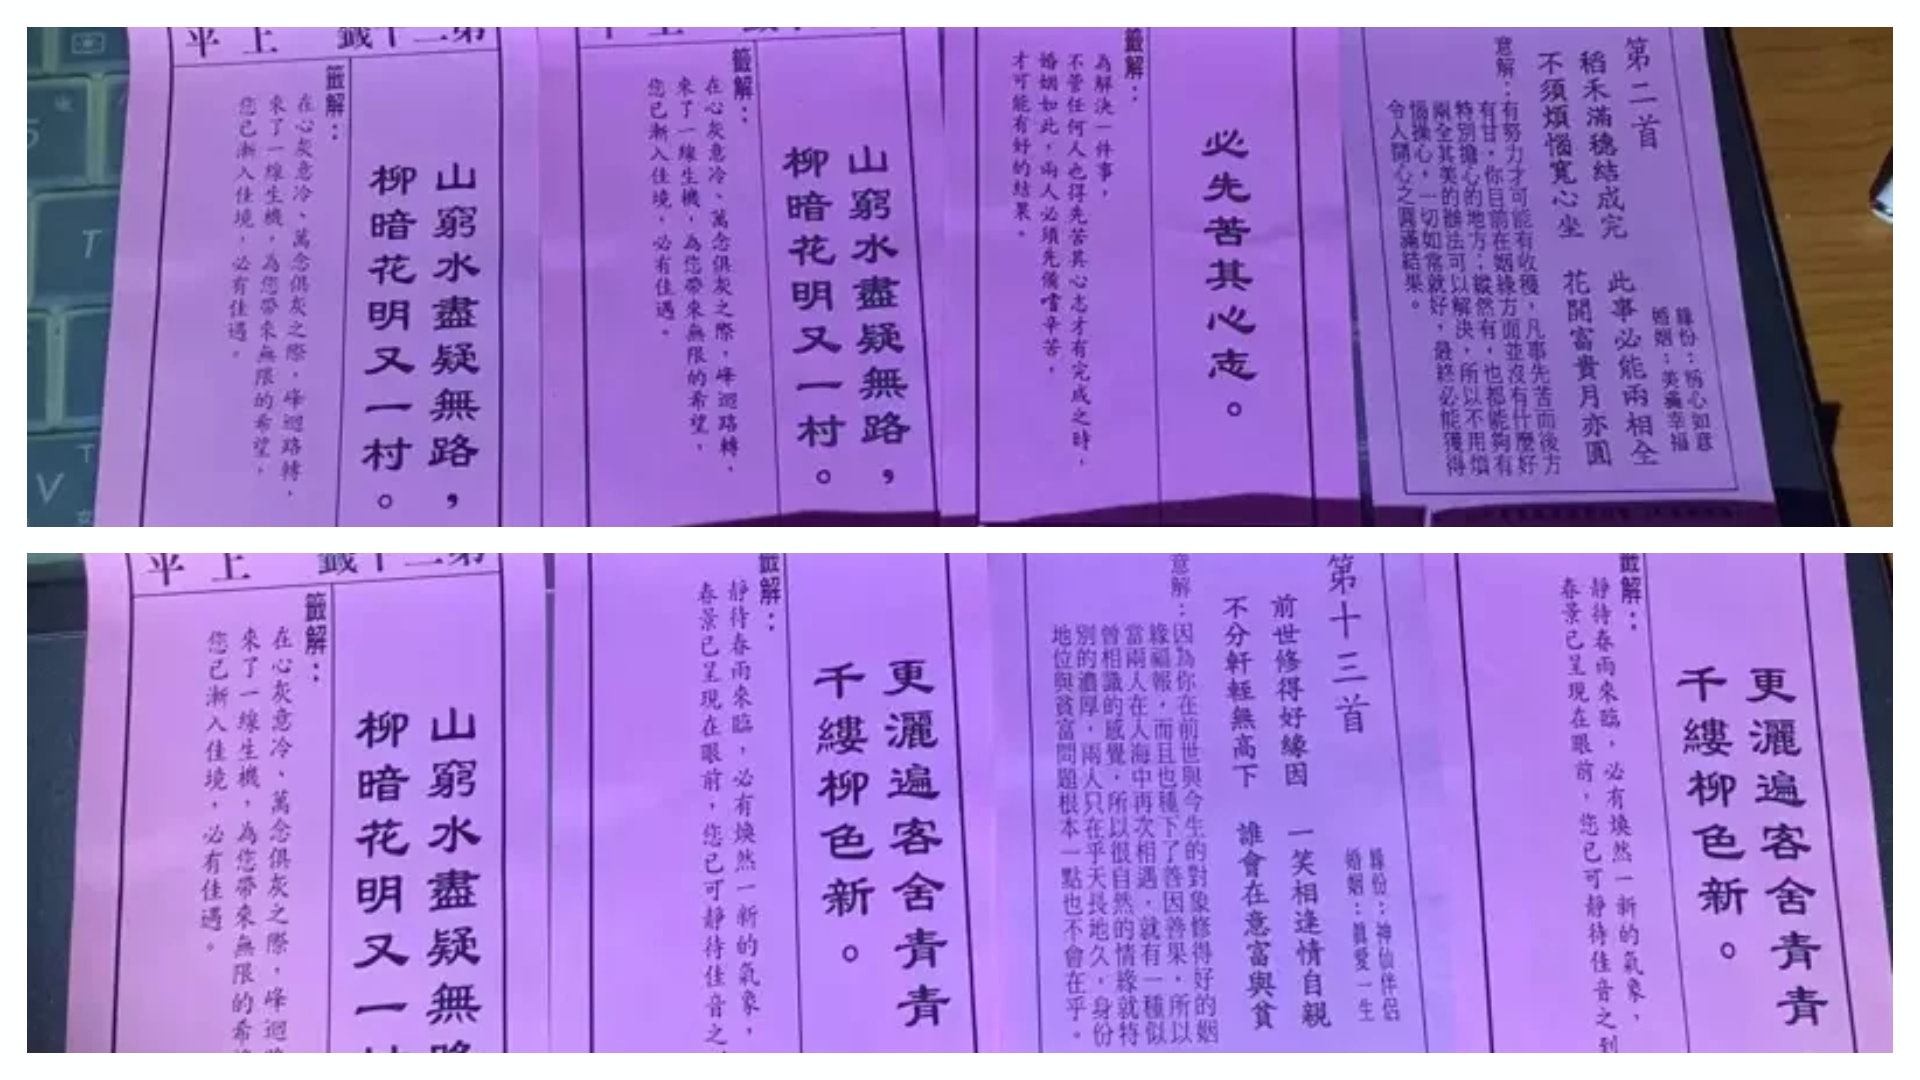 平上 籤十二第
山窮水盡疑無路，
柳暗花明又一村。
籤解：
在心灰意冷、萬念俱灰之際，峰迴路轉，
來了一線生機，為您帶來無限的希望，
您已漸入佳境，必有佳遇。
山窮水盡疑無路，
柳暗花明又一村。
籤解：
在心灰意冷、萬念俱灰之際，峰迴路轉，
來了一線生機，為您帶來無限的希望，
您已漸入佳境，必有佳遇。
必先苦其心志。
籤解：
為解決一件事，
不管任何人也得先苦其心志才有完成之時，
婚姻如此，兩人必須先備嚐辛苦，
才可能有好的結果。
第二首
緣份：稱心如意
婚姻：美滿幸福
稻禾滿穗結成完 此事必能兩相全
不須煩惱寬心坐 花開富貴月亦圓
意解：
有努力才可能有收穫，凡事先苦而後方
有甘，你目前在姻緣方面並沒有什麼好
特別擔心的地方；縱然有，也都能夠有
兩全其美的辦法可以解決，所以不用煩
惱操心，一切如常就好，最終必能獲得
令人開心之圓滿結果。
T
V
平上 籤十二第
山窮水盡疑無路
柳暗花明又一
籤解：
在心灰意冷、萬念俱灰之際，峰迴
來了一線生機，為您帶來無限的希
您已漸入佳境，必有佳遇。
更灑遍客舍青青
千縷柳色新。
籤解：
靜待春雨來臨，必有煥然一新的氣象，
春景已呈現在眼前，您已可靜待佳音之
第十三首
緣份：神仙伴侶
婚姻：真愛一生
前世修得好緣因 一笑相逢情自親
不分軒輊無高下 誰會在意富與貧
意解：
因為你在前世與今生的對象修得好的姻
緣福報，而且也種下了善因善果，所以
當兩人在人海中再次相遇，就有一種似
曾相識的感覺，所以很自然的情緣就特
別的濃厚，兩人只在乎天長地久，身份
地位與貧富問題根本一點也不會在乎。
更灑遍客舍青青
千縷柳色新。
籤解：
靜待春雨來臨，必有煥然一新的氣象，
春景已呈現在眼前，您已可靜待佳音之到